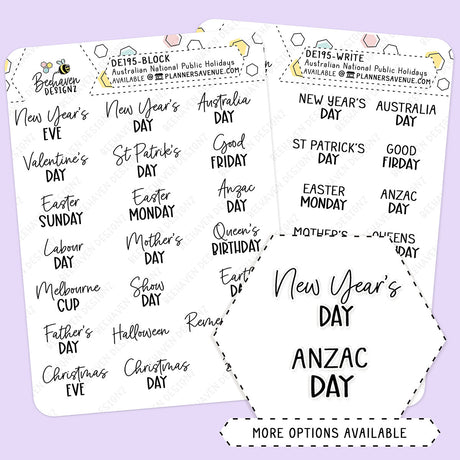 Beehaven
DESIGNZ
DE195-BLOCK
Australian National Public Holidays
AVAILABLE @ PLANNERSAVENUE.COM
New Year's
EVE
New Year's
DAY
Australia
DAY
Valentine's
DAY
St Patrik's
DAY
Good
FRIDAY
Easter
SUNDAY
Easter
MONDAY
Anzac
DAY
Labour
DAY
Mother's
DAY
Queen's
BIRTHDAY
Melbourne
CUP
Show
DAY
Eart
DAY
Father's
DAY
Halloween
Christmas
EVE
Christmas
DAY
DE195-WRITE
Australian National Public Holidays
AVAILABLE @ PLANNERSAVENUE.COM
NEW YEAR'S
DAY
AUSTRALIA
DAY
ST PATRICK'S
DAY
GOOD
FIRDAY
EASTER
MONDAY
ANZAC
DAY
MOTHER'S
QUEENS
New Year's
DAY
ANZAC
DAY
MORE OPTIONS AVAILABLE